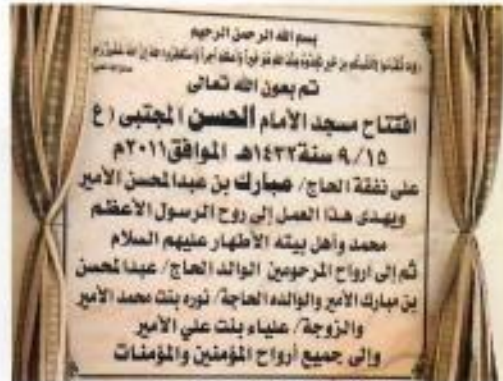 بسم الله الرحمن الرحيم
وما تقدموا لأنفسكم من خير تجدوه عند الله هو خيراً وأعظم أجراً واستغفروا الله إن الله غفور رحيم
تم بعون الله تعالى
افتتاح مسجد الأمام الحسن المجتبى (ع
٩/١٥ سنة ١٤٣٢هـ الموافق ٢٠١١م
على نفقة الحاج/ مبارك بن عبدالمحسن الأمير
ويهدى هذا العمل إلى روح الرسول الأعظم
محمد وأهل بيته الأطهار عليهم السلام
ثم إلى ارواح المرحومين الوالد الحاج/ عبدالمحسن
بن مبارك الأمير والوالده الحاجة/ نوره بنت محمد الأمير
والزوجة/ علياء بنت علي الأمير
وإلى جميع أرواح المؤمنين والمؤمنات